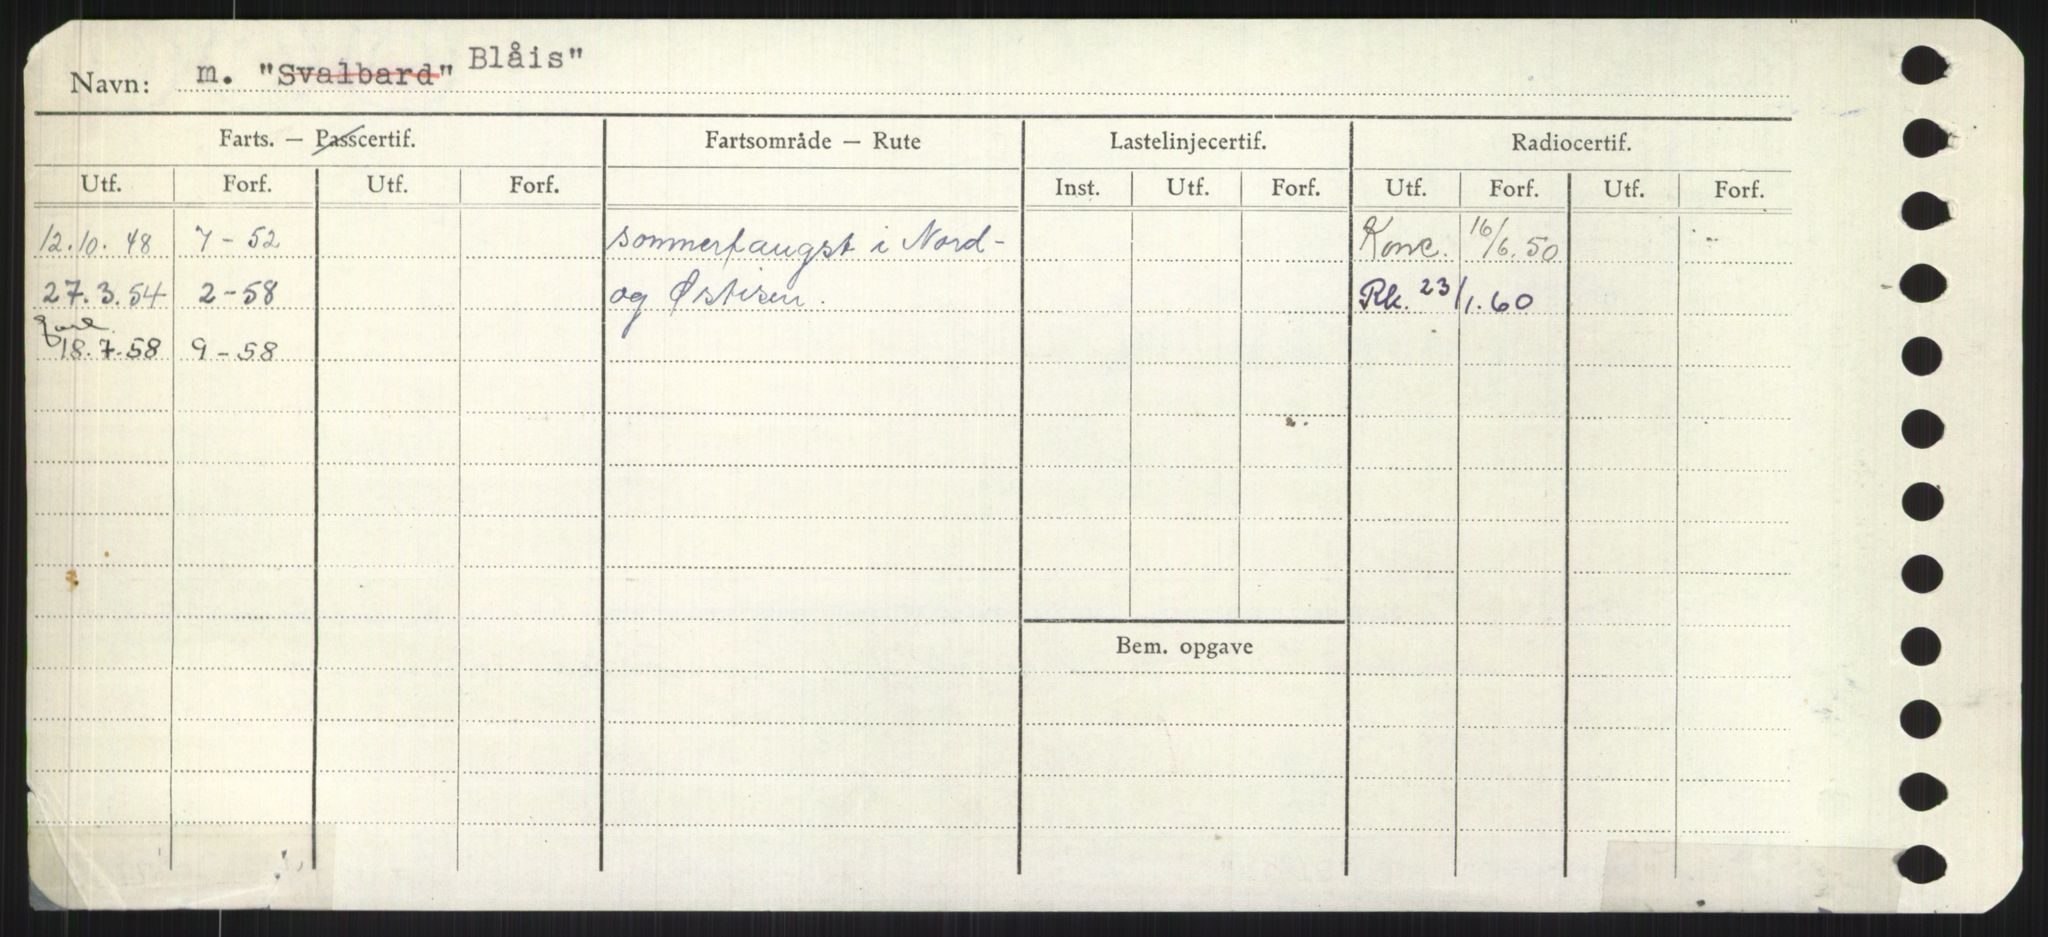 Navn: m. "Svalbard" Blåis"
Farts. — Passcertif. Fartsområde — Rute Lastelinjecertif. Radiocertif.
Utf. Forf. Utf. Forf. Inst. Utf. Forf. Utf. Forf. Utf. Forf.
12.10.48 7-52 sommerfangst i Nord- Konc. 16/6.50
27.3.54 2-58 og Østisen. Rk. 23/1.60
18.7.58 9-58
Bem. opgave